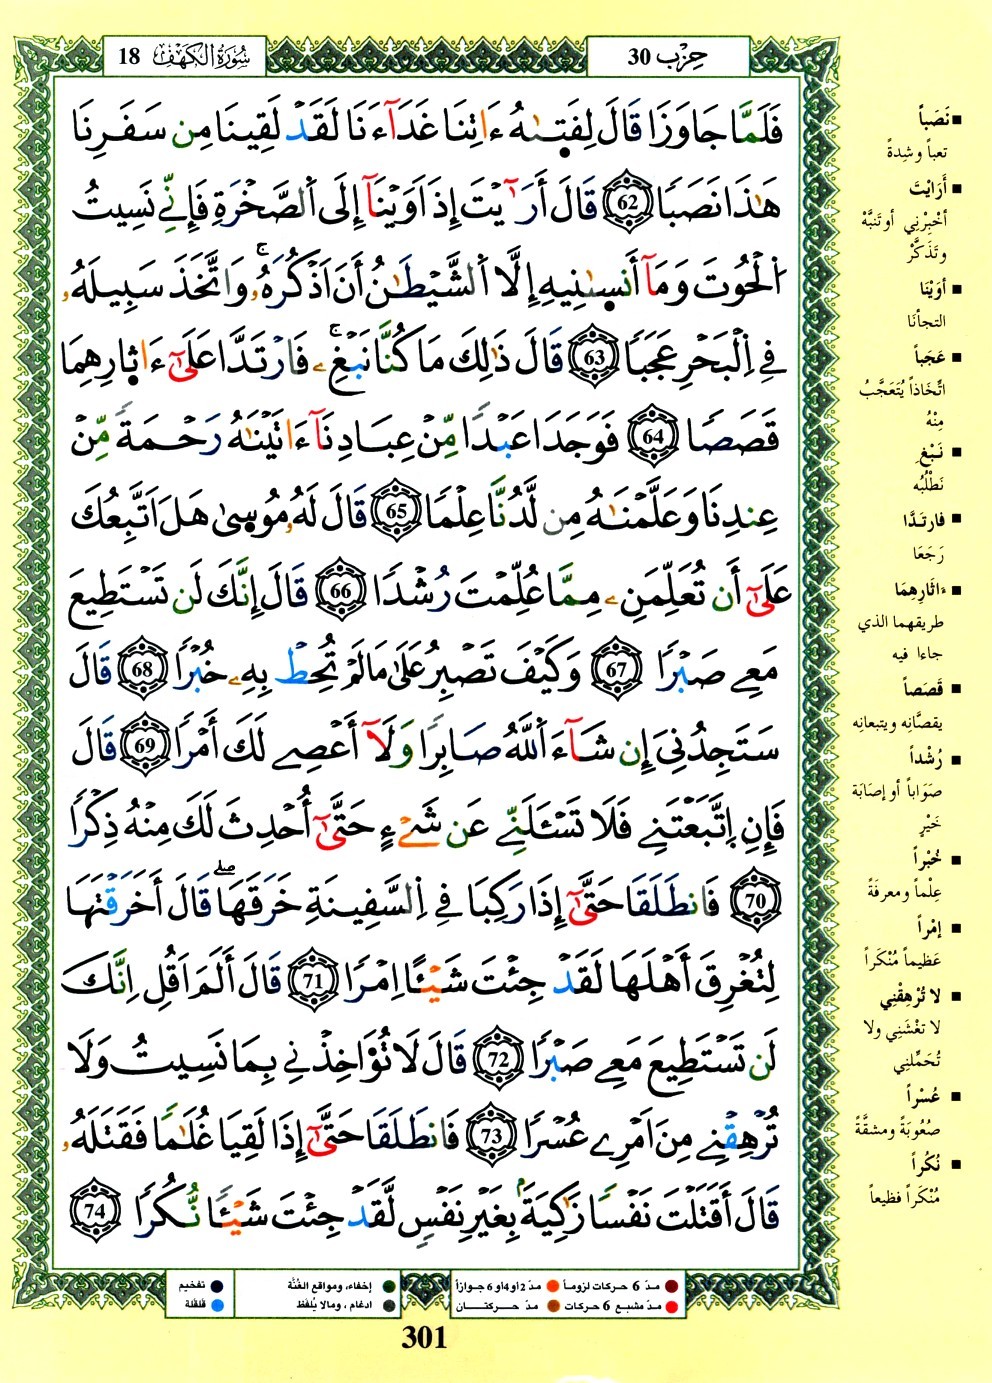 سُورَةُ الكَهْف 18
حِزْب 30
فَلَمَّا جَاوَزَا قَالَ لِفَتِىٰهُ ءَاتِنَا غَدَآءَنَا لَقَدْ لَقِينَا مِن سَفَرِنَا
هَٰذَا نَصَبًا 62 قَالَ أَرَٰٓيْتَ إِذَ اَوَيْنَآ إِلَى اَلصَّخْرَةِ فَإِنِّے نَسِيتُ
اُلْحُوتَ وَمَآ أَنسِىٰنِيهِ إِلَّا اَلشَّيْطَٰنُ أَنَ اَذْكُرَهُۥۚ وَاتَّخَذَ سَبِيلَهُۥ
فِے اِلْبَحْرِ عَجَبًا 63 قَالَ ذَٰلِكَ مَا كُنَّا نَبْغِۦۚ فَارْتَدَّا عَلَىٰٓ ءَاثِارِهِمَا
قَصَصًا 64 فَوَجَدَا عَبْدًا مِّنْ عِبَادِنَآ ءَاتَيْنَٰهُ رَحْمَةً مِّنْ
عِندِنَا وَعَلَّمْنَٰهُ مِن لَّدُنَّا عِلْمًا 65 قَالَ لَهُۥ مُوسِىٰ هَلَ اَتَّبِعُكَ
عَلَىٰٓ أَن تُعَلِّمَنِۦ مِمَّا عُلِّمْتَ رُشْدًا 66 قَالَ إِنَّكَ لَن تَسْتَطِيعَ
مَعِے صَبْرًا 67 وَكَيْفَ تَصْبِرُ عَلَىٰ مَا لَمْ تُحِطْ بِهِۦ خُبْرًا 68 قَالَ
سَتَجِدُنِىَ إِن شَآءَ اَللَّهُ صَابِرًا وَلَآ أَعْصِے لَكَ أَمْرًا 69 قَالَ
فَإِنِ اِتَّبَعْتَنِے فَلَا تَسْـَٔلَنِّے عَن شَےْءٍ حَتَّىٰٓ أُحْدِثَ لَكَ مِنْهُ ذِكْرًا
70 فَانطَلَقَا حَتَّىٰٓ إِذَا رَكِبَا فِے اِلسَّفِينَةِ خَرَقَهَاۖ قَالَ أَخَرَقْتَهَا
لِتُغْرِقَ أَهْلَهَا لَقَدْ جِئْتَ شَيْـًٔا اِمْرًا 71 قَالَ أَلَمَ اَقُلِ اِنَّكَ
لَن تَسْتَطِيعَ مَعِے صَبْرًا 72 قَالَ لَا تُوَٰخِذْنِے بِمَا نَسِيتُ وَلَا
تُرْهِقْنِے مِنَ اَمْرِے عُسْرًا 73 فَانطَلَقَا حَتَّىٰٓ إِذَا لَقِيَا غُلَٰمًا فَقَتَلَهُۥ
قَالَ أَقَتَلْتَ نَفْسًا زَٰكِيَةً بِغَيْرِ نَفْسٍ لَّقَدْ جِئْتَ شَيْـًٔا نُّكُرًا 74
■ نَصَباً
تعباً وشِدةً
■ أَرَايْتَ
أخْبِرْنِي أو تَنبَّهْ
وتَذَكَّرْ
■ أوَيْنَا
التجأنَا
■ عَجَباً
اتِّخَاذاً يُتَعَجَّبُ
مِنْهُ
■ نَبْغِ
نَطْلُبُه
■ فارتَدَّا
رَجَعَا
■ ءاثَارِهِمَا
طريقهما الذي
جاءا فيه
■ قَصَصاً
يقصَّانِه ويتبعانِه
■ رُشْداً
صَوَاباً أو إصَابَة
خَيْرٍ
■ خُبْراً
عِلْماً ومعرفَةً
■ إمْراً
عَظيماً مُنْكَراً
■ لا تُرْهِقْنِي
لا تغْشَنِي ولا
تُحَمِّلنِي
■ عُسْراً
صُعُوبَةً ومشقَّةً
■ نُكُراً
مُنْكَراً فظيعاً
مدّ 6 حركات لزوماً
مدّ 2 أو 4 أو 6 جوازاً
مدّ مشبع 6 حركات
مدّ حركتان
إخفاء، ومواقع الغُنَّة
ادغام، ومالا يُلفظ
تفخيم
قلقلة
301